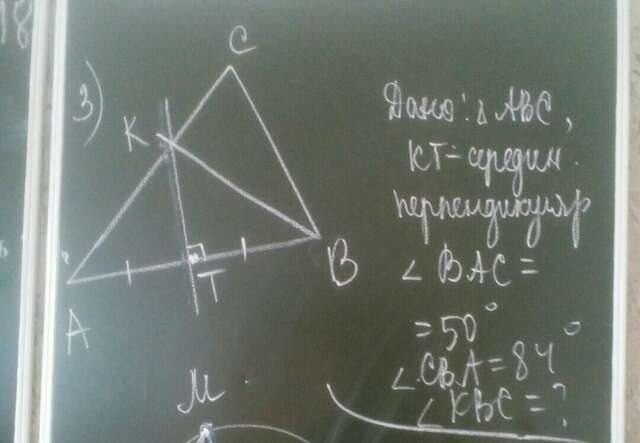 18
3)
C
K
A
T
B
Дано: △ ABC,
KT = середин.
перпендикуляр
∠ BAC =
= 50°
∠ CBA = 84°
∠ KBC = ?
M